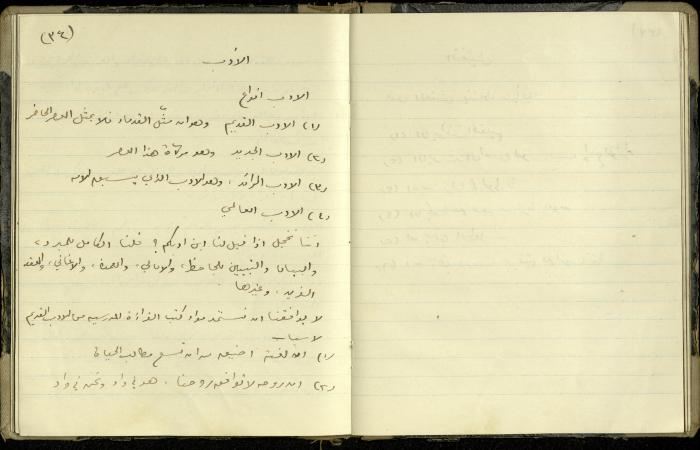 (٣٤)
الأدب
الادب انواع
(١) الادب القديم وهو ان مثّل القدماء فلا يمثل العصر الحاضر
(٢) الادب الجديد وهو مرآة هذا العصر
(٣) الادب الرائد، وهو الادب الذي يسبق زمنه
(٤) الادب العالمي
اننا نخجل اذا قيل لنا اين ادبكم؟ قلنا الكامل للمبرد،
والبيان والتبيين للجاحظ، والامالي، والعمدة، والاغاني، والعقد
الفريد، وغيرها
لا يوافقنا ان نستمد مواد كتب القراءة المدرسية من الادب القديم
لاسباب
(١) ان لغته اضيق من ان تسع مطالب الحياة
(٢) ان روحه لا توافق روحنا، هو في واد ونحن في واد